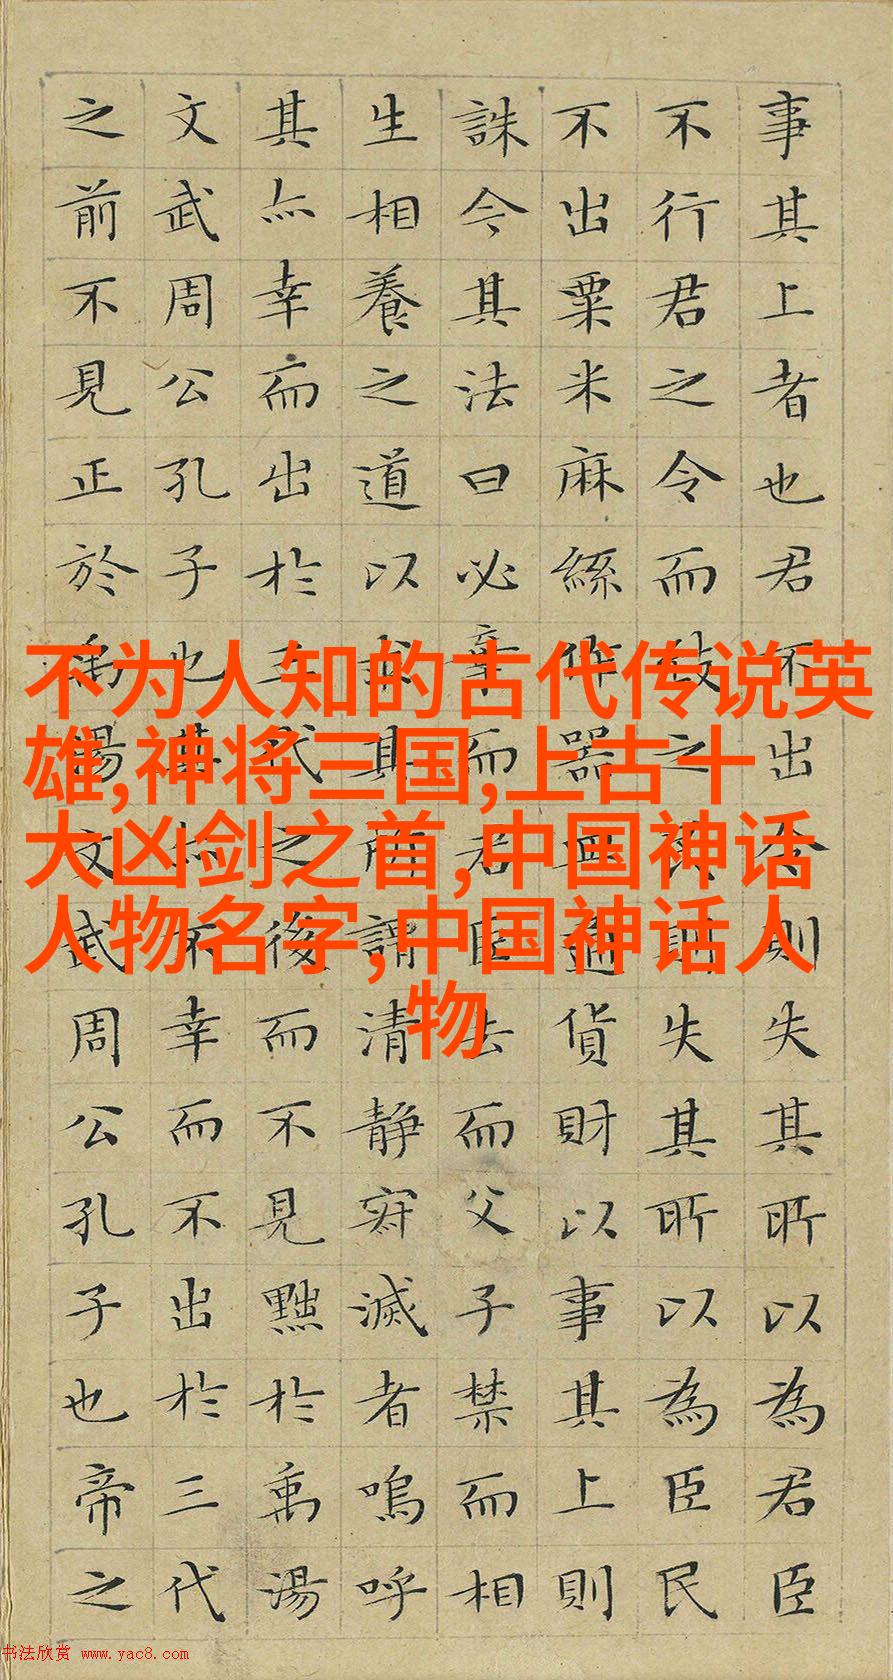 事其上者也君不出令則失其所以為君臣
不行君之令而致之民則失其所以為臣民
不出粟米麻絲作器皿通貨財以事其上則
誅今其法曰必棄而君臣去而父子禁而相
生相養之道以求其所謂清静寂滅者嗚呼
其亦幸而出於三代之後而不見黜於禹湯
文武周公孔子也其亦不幸而不出於三代
之前不見正於禹湯文武周公孔子也帝之
不为人知的古代传说英
雄,神将三国,上古十
大凶剑之首,中国神话
人物名字,中国神话人
物
书法欣赏 www.yac8.com